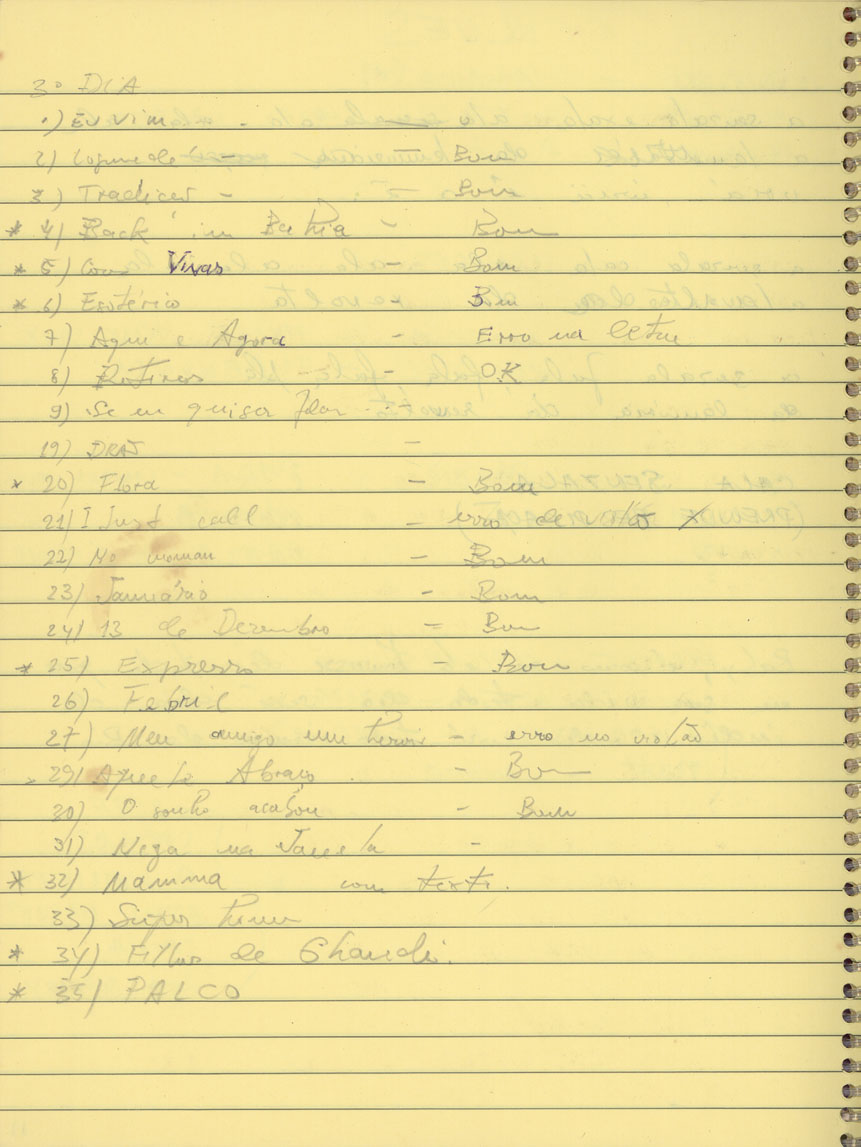 3º DIA
1) EU VIM -
2) Logunedé - Bom
3) Tradição - Bom
* 4) Back in Bahia - Bom
* 5) Cores Vivas - Bom
* 6) Esotérico - Bom
7) Aqui e Agora - Erro na letra
8) - OK
9) Se eu quiser falar -
19) DRÃO -
* 20) Flora - Bom
21) I Just call - erro de violão X
22) No woman - Bom
23) Januário - Bom
24) 13 de Dezembro - Bom
* 25) Expresso - Bom
26) Febril
27) Meu amigo meu herói - erro no violão
29) Aquele Abraço - Bom
30) O sonho acabou - Bom
31) Nega na Janela -
* 32) Mamma com texto.
33) Super homem
* 34) Filhos de Ghandi.
* 35) PALCO